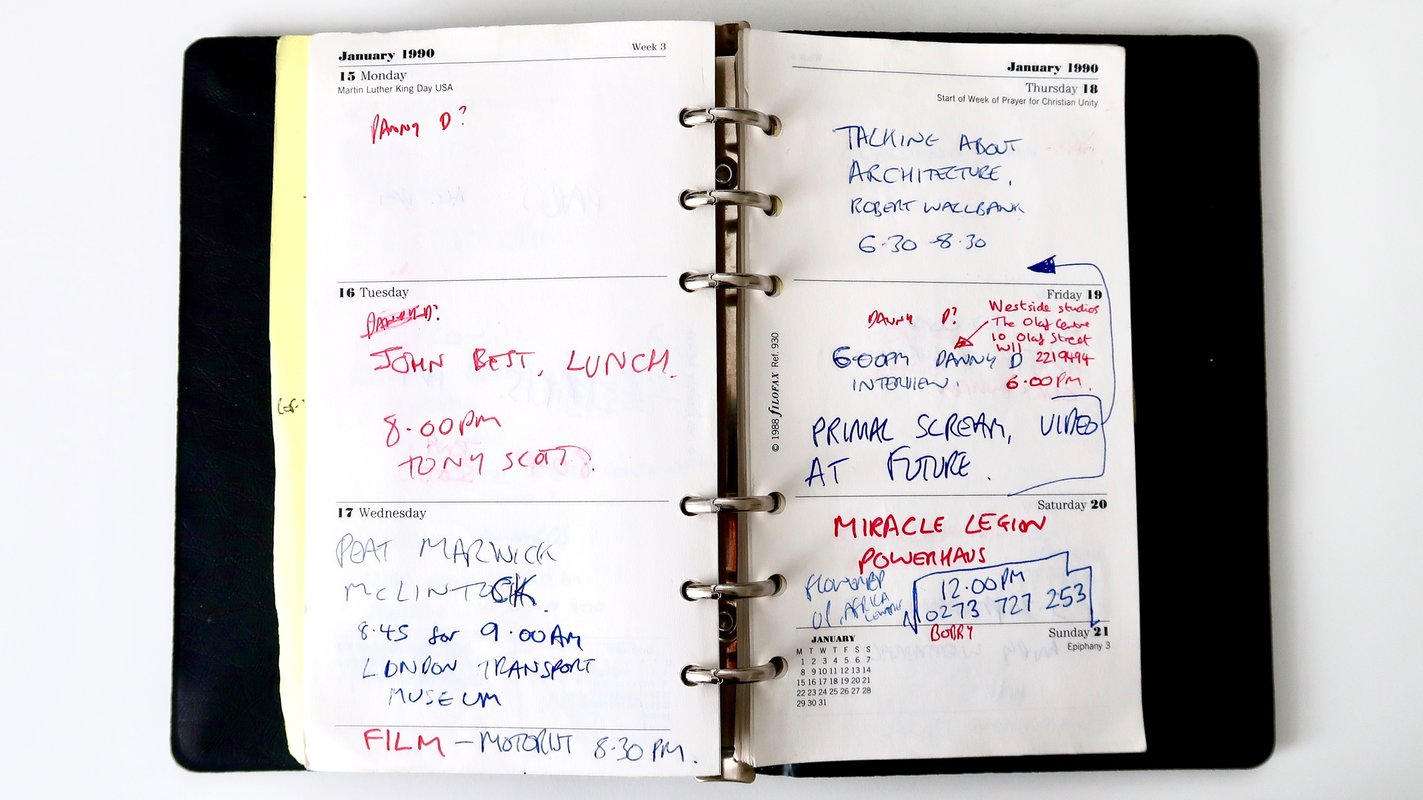 January 1990
Week 3
15 Monday
Martin Luther King Day USA
DANNY D?
16 Tuesday
DANNY D?
JOHN BEST, LUNCH.
8.00PM
TONY SCOTT.
17 Wednesday
PEAT MARWICK
McLINTOCK
8.45 for 9.00AM
LONDON TRANSPORT
MUSEUM
FILM – 8.30PM.
January 1990
Thursday 18
Start of Week of Prayer for Christian Unity
TALKING ABOUT
ARCHITECTURE,
ROBERT WALLBANK
6.30 - 8.30
Friday 19
DANNY D?
Westside studios
The Olaf Centre
10 Olaf Street
W11
2219494
6.00PM.
6.00PM DANNY D
INTERVIEW.
PRIMAL SCREAM, VIDEO
AT FUTURE.
© 1988 fILOFAX Ref. 930
Saturday 20
MIRACLE LEGION
POWERHAUS
OF AFRICA
12.00PM
0273 727 253
BOBBY
Sunday 21
Epiphany 3
JANUARY
M T W T F S S
1 2 3 4 5 6 7
8 9 10 11 12 13 14
15 16 17 18 19 20 21
22 23 24 25 26 27 28
29 30 31